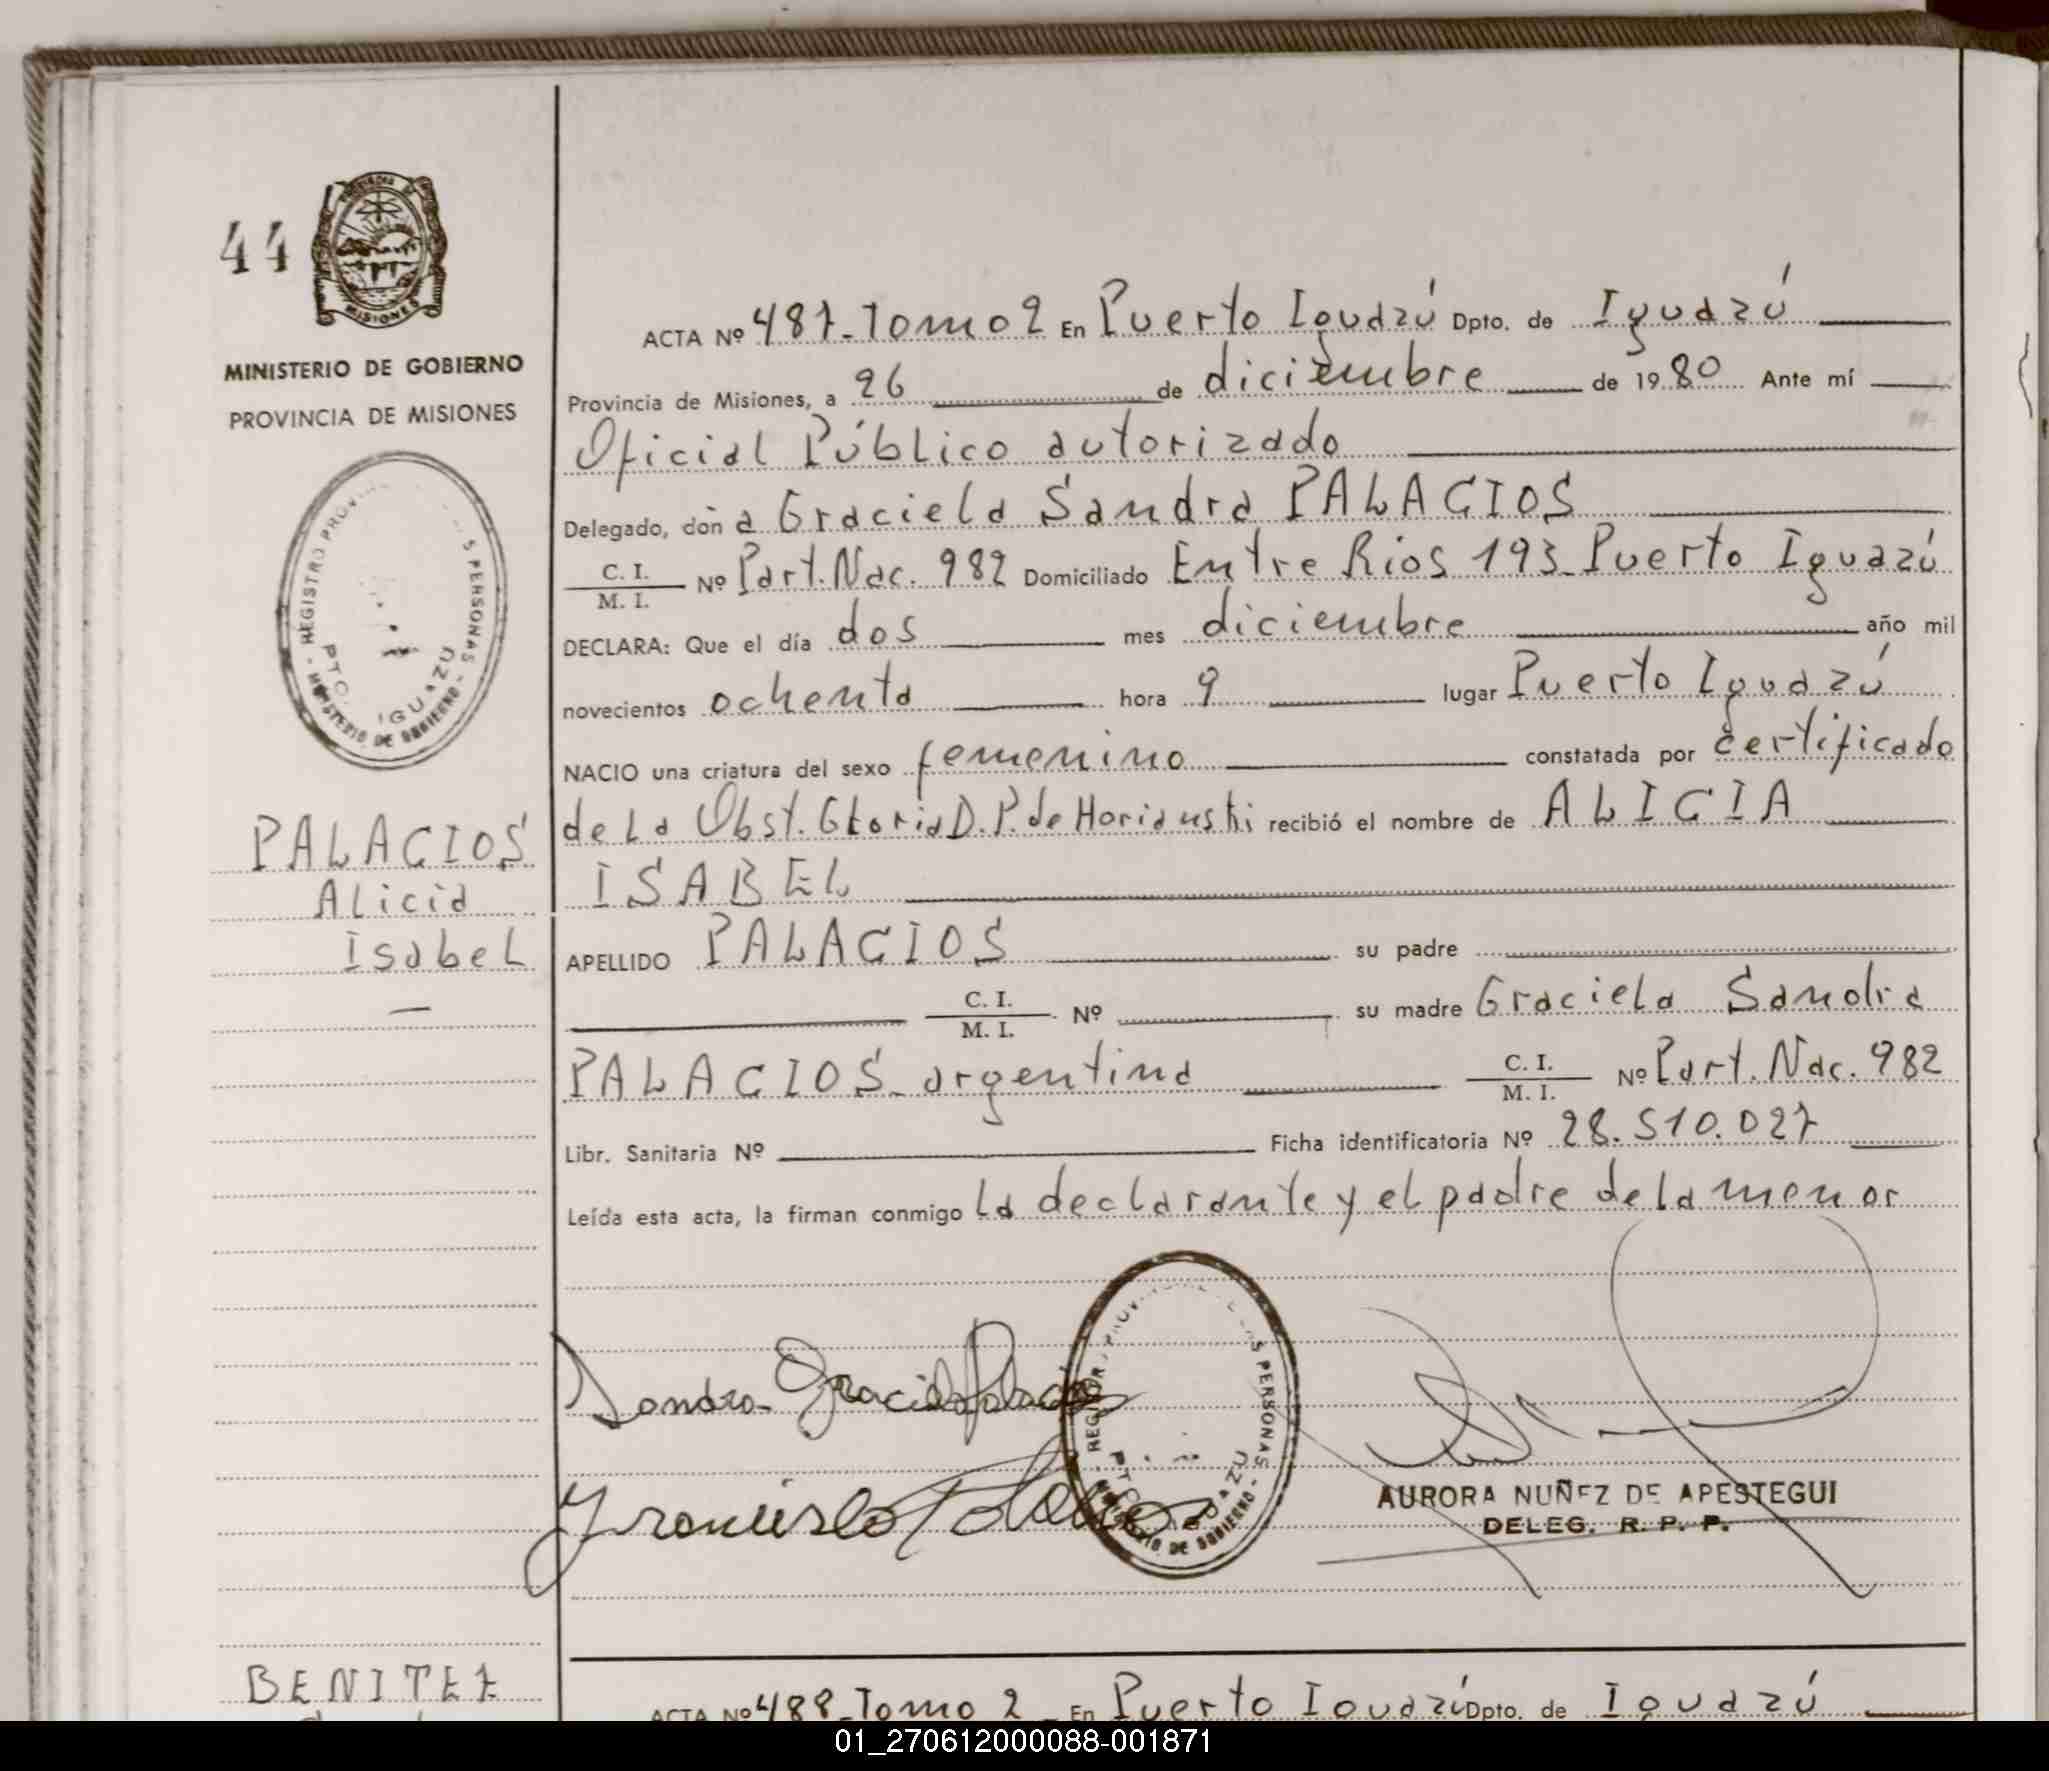 44
MISIONES
MINISTERIO DE GOBIERNO
PROVINCIA DE MISIONES
REGISTRO PROV S PERSONAS
PTO. IGUAZU
MINISTERIO DE GOBIERNO
PALACIOS
Alicia
Isabel
—
ACTA Nº 487-Tomo 2 En Puerto Iguazú Dpto. de Iguazú
Provincia de Misiones, a 26 de diciembre de 1980 Ante mí
Oficial Público autorizado
Delegado, don a Graciela Sandra PALACIOS
C. I.
M. I. Nº Part. Nac. 982 Domiciliado Entre Rios 193-Puerto Iguazú
DECLARA: Que el día dos mes diciembre año mil
novecientos ochenta hora 9 lugar Puerto Iguazú
NACIO una criatura del sexo femenino constatada por certificado
de la Obst. Gloria D. P. de recibió el nombre de ALICIA
ISABEL
APELLIDO PALACIOS su padre
C. I.
M. I. Nº su madre Graciela Sandra
PALACIOS-argentina C. I.
M. I. Nº Part. Nac. 982
Libr. Sanitaria Nº Ficha identificatoria Nº 28.510.027
Leída esta acta, la firman conmigo la declarante y el padre de la menor
Sandra Graciela Palacios
Francisco Palacios
REGISTRO PROV S PERSONAS
MINISTERIO DE GOBIERNO
AURORA NUÑEZ DE APESTEGUI
DELEG. R. P. P.
BENITEZ
ACTA Nº 488-Tomo 2 En Puerto Iguazú Dpto. de Iguazú
01_270612000088-001871